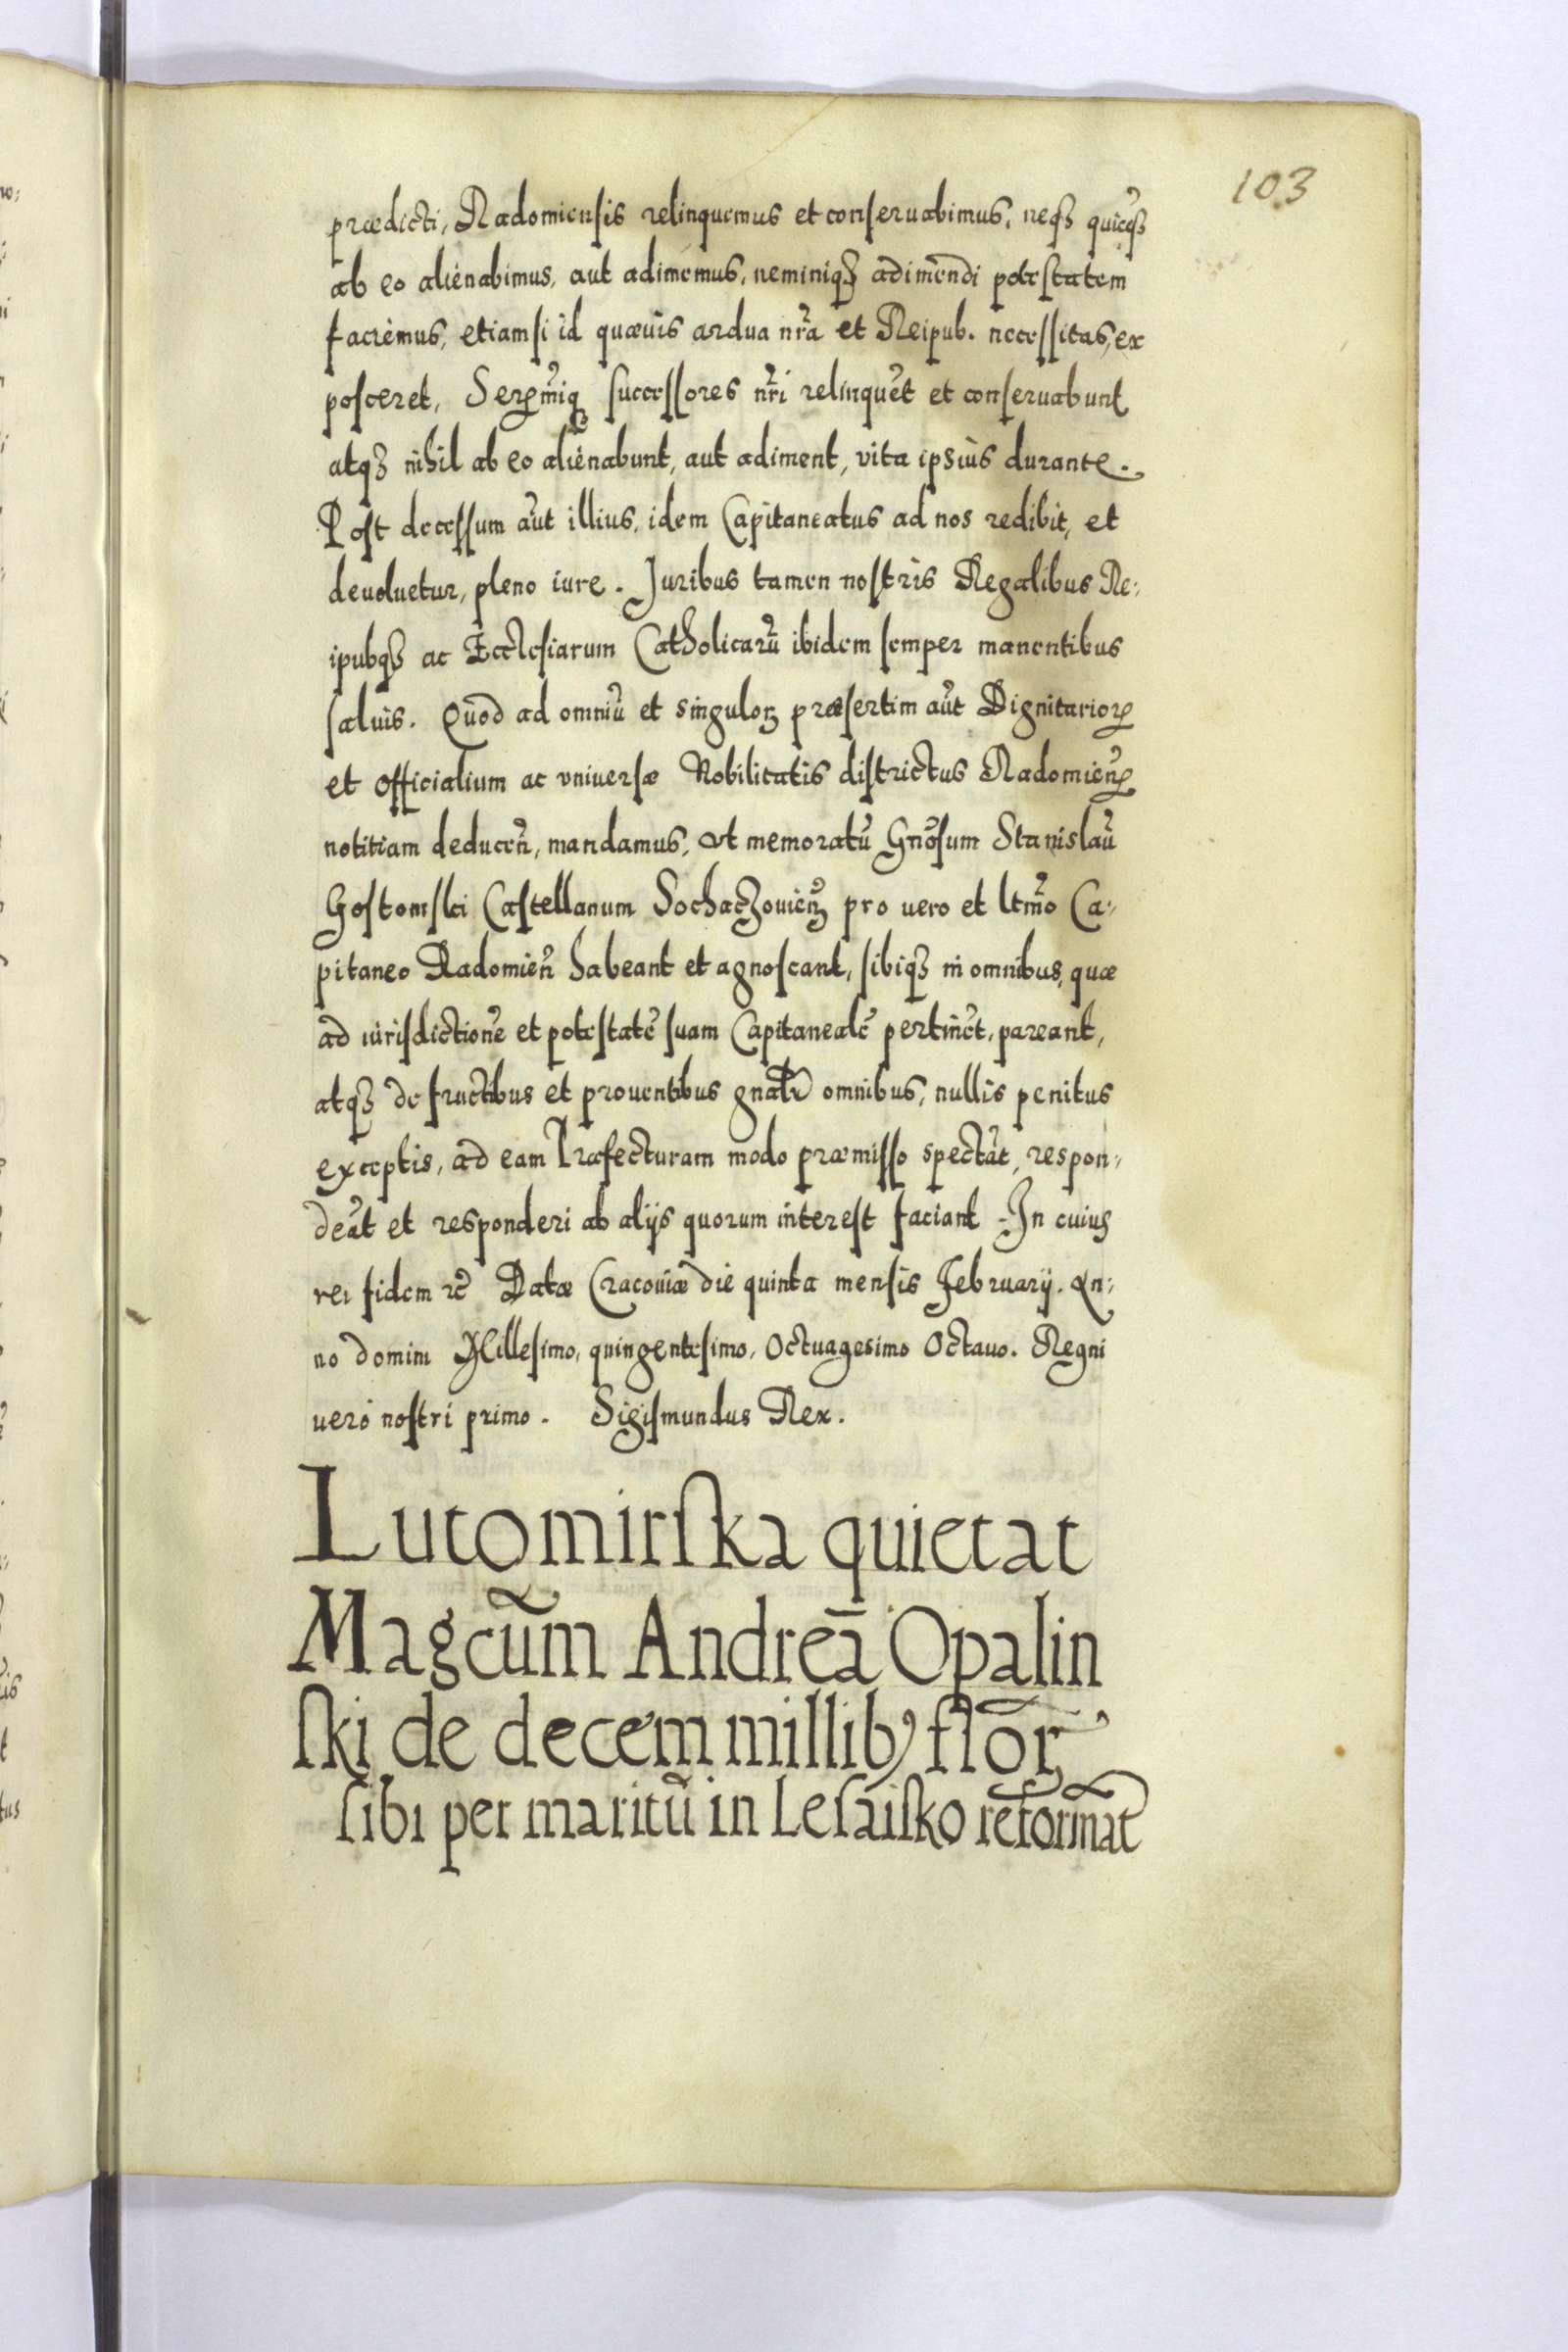 103
prædicti, Radomiensis relinquemus et conseruabimus, neqȝ quicqȝ
ab eo alienabimus, aut adimemus, neminiqȝ adimendi potestatem
faciemus, etiamsi id quæuis ardua nr̃a et Reipub. necessitas, ex
posceret, Serꝑmiq̃ successores nr̃i relinquẽt et conseruabunt
atqȝ nihil ab eo alienabunt, aut adiment, vita ipsius durante.
Post decessum aũt illius, idem Capitaneatus ad nos redibit, et
deuoluetur, pleno iure. Juribus tamen nostris Regalibus Re:
ipubqȝ ac Ecclesiarum Catholicarũ ibidem semper manentibus
saluis. Quod ad omniũ et singuloꝝ præsertim aũt Dignitarioꝝ
et officialium ac vniuersæ Nobilitatis districtus Radomieñ
notitiam deduceñ, mandamus, vt memoratũ Gnõsum Stanislaũ
Gostomski Castellanum Sochaczouieñ pro uero et ltm̃o Ca:
pitaneo Radomieñ habeant et agnoscant, sibiqȝ in omnibus, quæ
ad iurisdictionẽ et potestatẽ suam Capitanealẽ pertinẽt, pareant,
atqȝ de fructibus et prouentibus gnałr omnibus, nullis penitus
exceptis, ad eam Præfecturam modo præmisso spectãt, respon:
deãt et responderi ab alijs quorum interest faciant. In cuius
rei fidem ꝛc̃ Datæ Cracouiæ die quinta mensis February. An:
no domini Millesimo, quingentesimo, Octuagesimo Octauo. Regni
uero nostri primo. Sigismundus Rex.
Lutomirska quietat
Magcũm Andreã Opalin
ski de decem millibꝰ flõr
sibi per maritũ in Lesaisko reformat̃